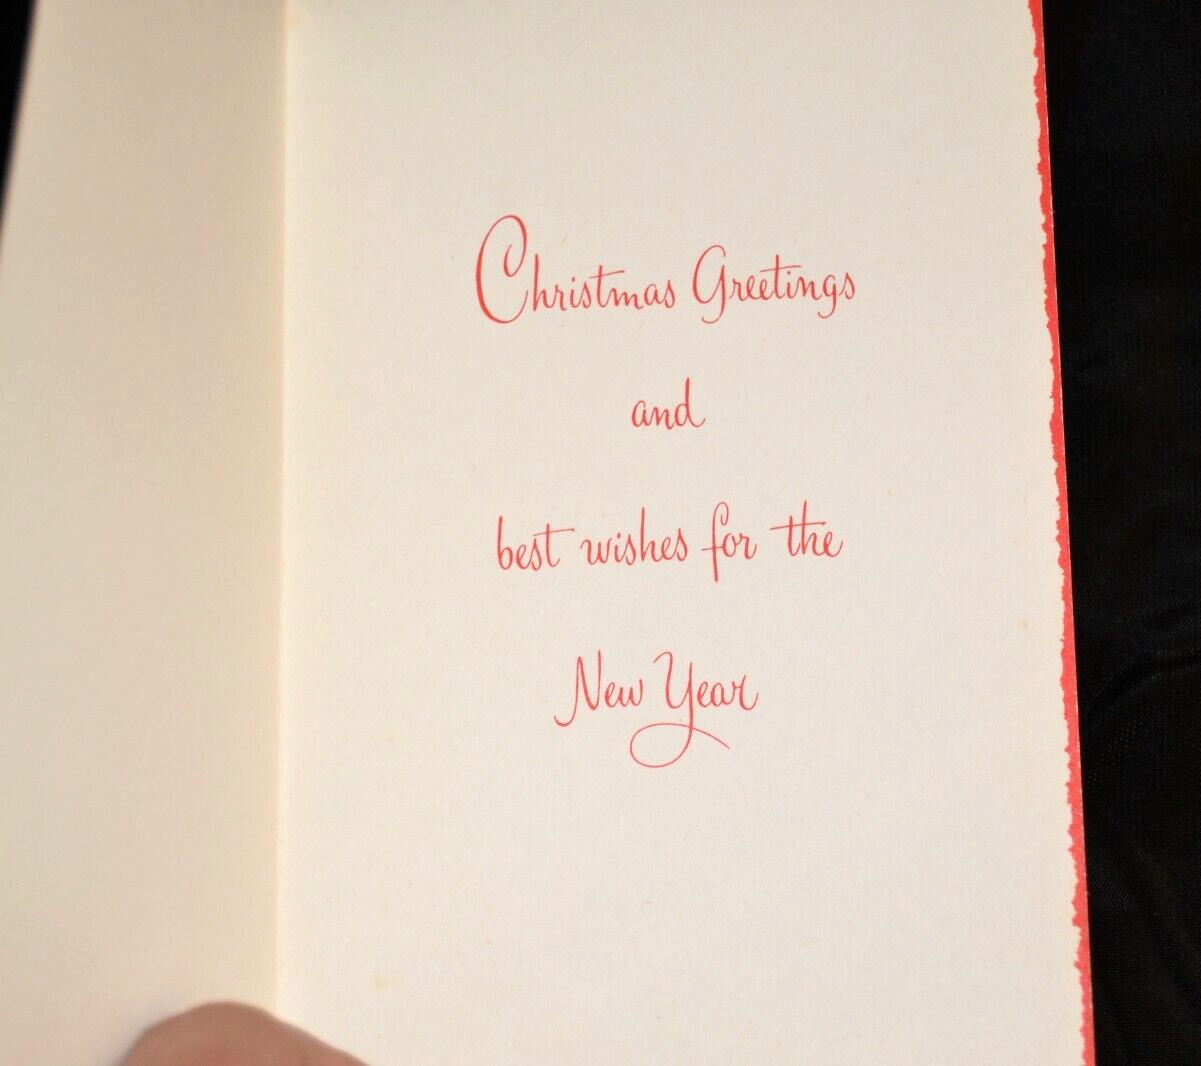 Christmas Greetings
and
best wishes for the
New Year